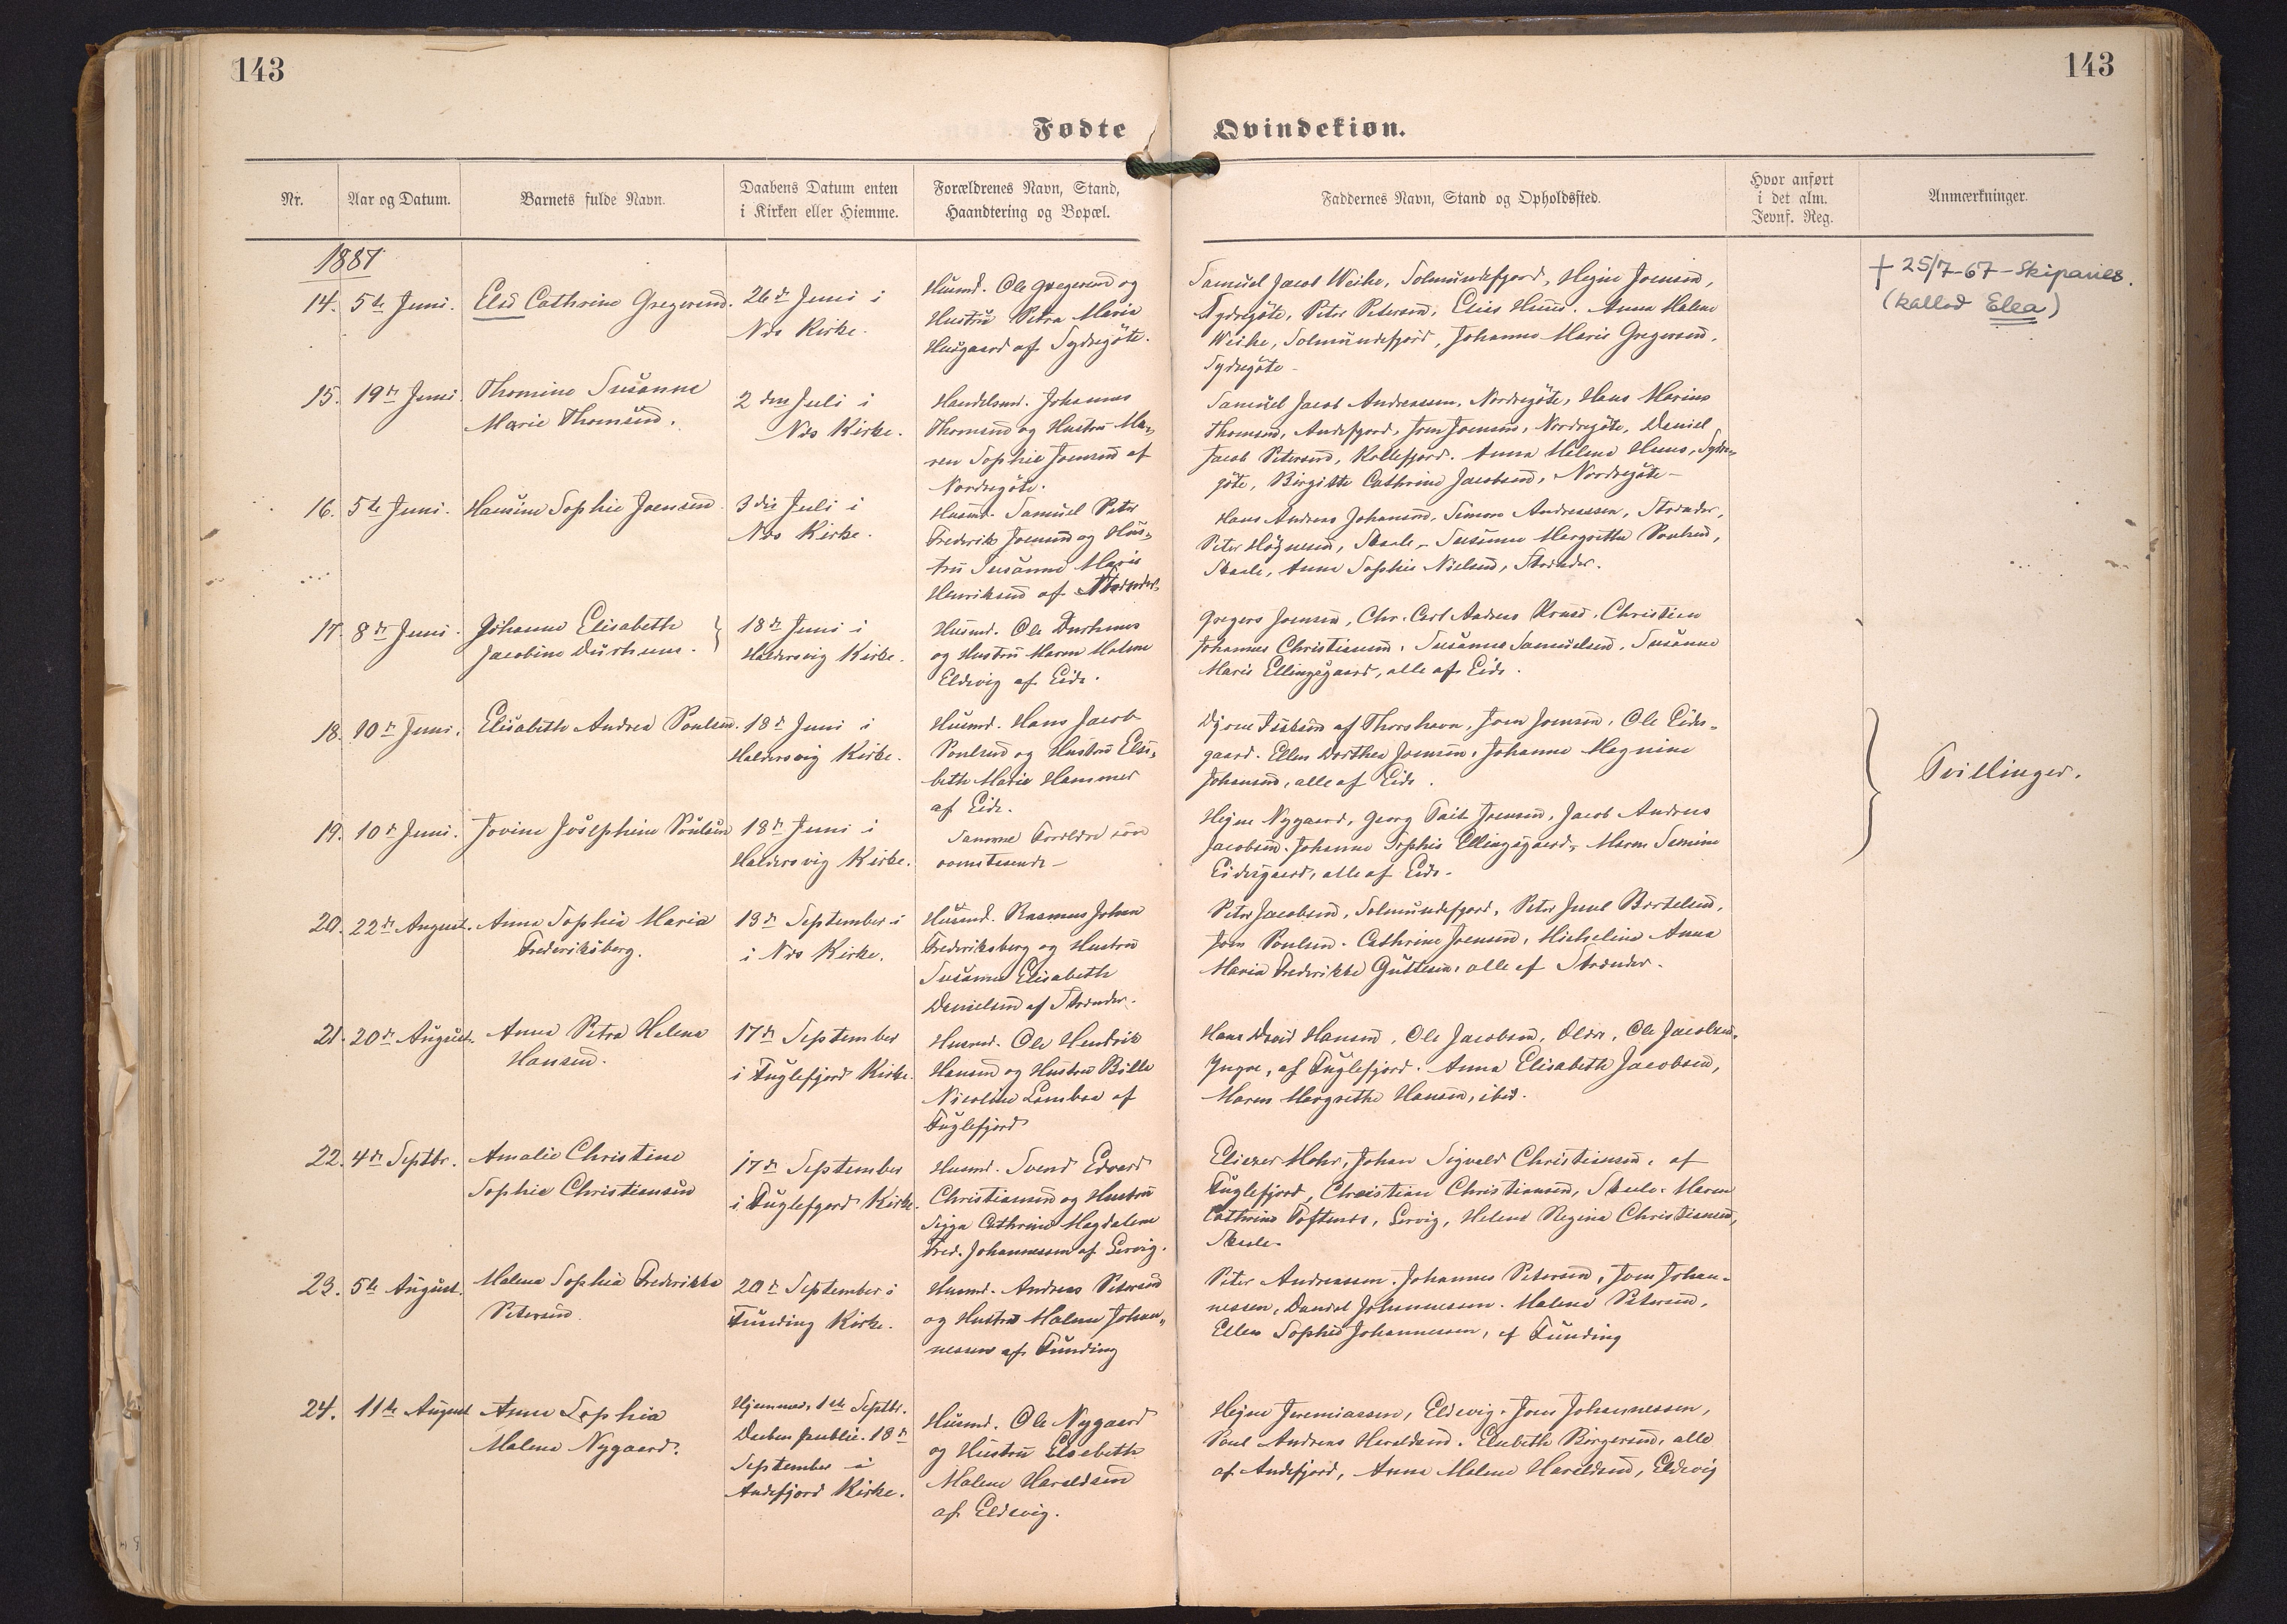 143
143
Fødte
Qvindekiøn.
Nr.
Aar og Datum.
Barnets fulde Navn.
Daabens Datum enten
i Kirken eller Hiemme.
Forældrenes Navn, Stand,
Haandtering og Bopæl.
Faddernes Navn, Stand og Opholdssted.
Hvor anført
i det alm.
Jevnf. Reg.
Anmærkninger.
1887
14. 5te Juni. Elsa Cathrine Gregersen.
26de Juni i
Næs Kirke.
Husmd. Ole Gregersen og
Hustru Petra Maria
Husgaard af Sydregöte.
Samuel Jacob Weihe, Solmundefjord, Hejne Joensen,
Sydregöte, Peter Petersen, Elias Huus. Anna Malene
Weihe, Solmundefjord, Johanne Marie Gregersen,
Sydregöte
+ 25/7-67 - Skipanes.
(kallad Elea)
15. 19de Juni Thomine Susanne
Marie Thomsen.
2den Juli i
Næs Kirke.
Handelsmd. Johannes
Thomsen og Hustru Ma-
ren Sophie Joensen af
Nordregöte.
Samuel Jacob Andreassen, Nordregöte, Hans Marius
Thomsen, Andefjord, Joen Joensen, Nordregöte, Daniel
Jacob Petersen, Kollefjord. Anna Helene Huus, Sydre-
göte, Birgitte Cathrine Jacobsen, Nordregöte
16. 5te Juni. Hansine Sophie Joensen
3die Juli i
Næs Kirke.
Husmd. Samuel Peter
Frederik Joensen og Hus-
tru Susanne Marie
Henriksen af Strender.
Hans Andreas Johansen, Simon Andreassen, Strender,
Peter Högnesen, Skaale, Susanne Margretha Poulsen,
Skaale, Anne Sophie Nielsen, Strender.
17. 8de Juni. Johanne Elisabeth
Jacobine Durhuus.
18de Juni i
Haldersvig Kirke.
Husmd. Ole Durhuus
og Hustru Maren Malene
Eldevig af Eide.
Gregers Joensen, Chr. Carl Andreas Kruse, Christian
Johannes Christiansen, Susanne Samuelsen, Susanne
Marie Ellingsgaard, alle af Eide.
18. 10de Juni. Elisabeth Andrea Poulsen.
18de Juni i
Haldersvig Kirke.
Husmd. Hans Jacob
Poulsen og Hustru Elsi-
beth Marie Hammer
af Eide.
af Thorshavn, Joen Joensen, Ole Eides-
gaard. Ellen Dorthea Joensen, Johanne Magnine
Johansen, alle af Eide.
Tvillinger.
19. 10de Juni. Jovine Josephine Poulsen
18de Juni i
Haldersvig Kirke.
Samme Forældre som
ovenstaaende
Hejne Nygaard, Georg Joensen, Jacob Andreas
Jacobsen. Johanne Sophie Ellingsgaard, Maren Simine
Eidesgaard, alle af Eide.
20. 22de August. Anna Sophia Maria
Frederiksberg.
13de September i
i Næs Kirke.
Husmd. Rasmus Johan
Frederiksberg og Hustru
Susanne Elisabeth
Danielsen af Strender.
Peter Jacobsen, Solmundefjord, Peter Juul Bertelsen,
Joen Poulsen. Cathrine Joensen, Micheline Anna
Maria Frederikke Guttesen, alle af Strender.
21. 20de August. Anna Petra Helena
Hansen.
17de September
i Fuglefjord Kirke.
Husmd. Ole Hendrik
Hansen og Hustru Bille
Nicoline Lamboe af
Fuglefjord
Hans David Hansen, Ole Jacobsen, Oldre, Ole Jacobsen
Yngre, af Fuglefjord. Anna Elisabeth Jacobsen,
Maren Margrethe Hansen, ibid.
22. 4de Septbr. Amalie Christine
Sophie Christiansen
17de September
i Fuglefjord Kirke.
Husmd. Svend Edvard
Christiansen og Hustru
Sigga Cathrine Magdalene
Fred. Johannessen af Lervig.
Eliezer Mohr, Johan Sigvald Christiansen, af
Fuglefjord, Christian Christiansen, Skaale. Maren
Cathrine Toftenes, Lervig, Helene Regine Christiansen,
Skaale.
23. 5te August. Malene Sophia Frederikke
Petersen
20de September i
Funding Kirke.
Husmd. Andreas Petersen
og Hustru Malene Johan-
nessen af Funding
Peter Andreassen. Johannes Petersen, Joen Johan-
nessen, Daniel Johannessen. Malene Petersen,
Ellen Sophie Johannessen, af Funding
24. 11te August Anna Sophia
Malene Nygaard.
Hjemmed. 1ste Septbr.
Daaben public. 18de
September i
Andefjord Kirke.
Husmd. Ole Nygaard
og Hustru Elsebeth
Malene Haraldsen
af Eldevig.
Hejne Jeremiassen, Eldevig. Joen Johannessen,
Poul Andreas Haraldsen. Elsebeth Birgersen, alle
af Andefjord, Anna Malene Haraldsen, Eldevig